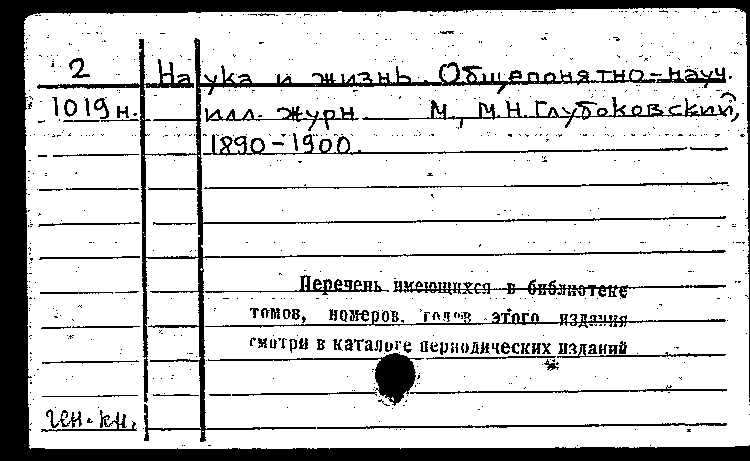 2 Наука и жизнь. Общепонятно-науч.
1019н. илл. журн. М., М.Н. Глубоковский,
1890-1900.
Перечень имеющихся в библиотеке
томов, номеров, годов этого издания
смотри в каталоге периодических изданий
ген. кн.